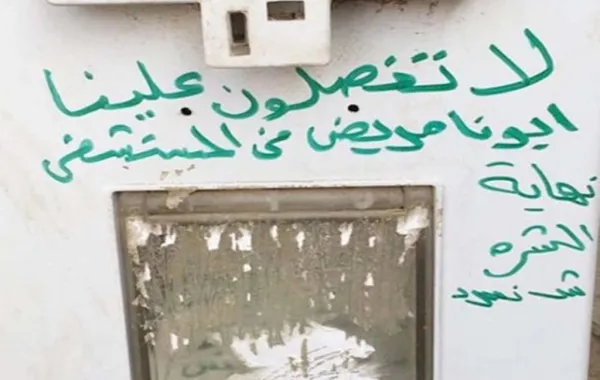 لا تفصلون علينا
ابونا مريض في المستشفى
نهاية
الشهره
نسدد